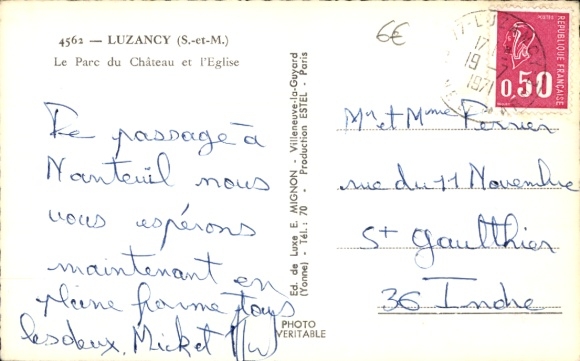 4562 — LUZANCY (S.-et-M.)
Le Parc du Château et l'Eglise
6€
17
19 -
1971
POSTES
REPUBLIQUE FRANÇAISE
0,50
De passage à
Nanteuil nous
vous espérons
maintenant en
pleine forme Tous
les deux.
Ed. de Luxe E. MIGNON - Villeneuve-la-Guyard
(Yonne) - Tél. : 70 - Production ESTEL - Paris
PHOTO
VERITABLE
Mr et Mme Perrier
rue du 11 Novembre
St Gaulthier
36 Indre